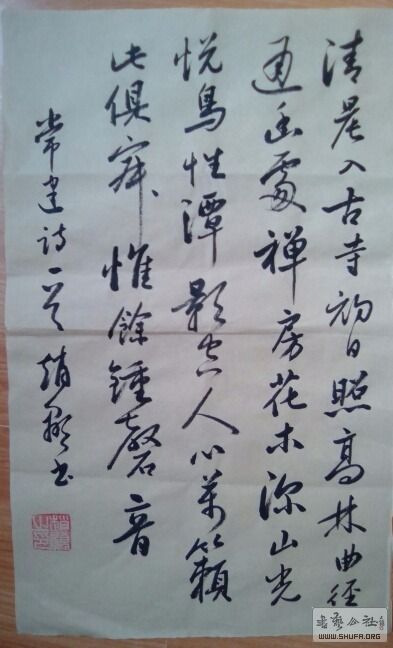 清晨入古寺初日照高林曲径
通幽處禅房花木深山光
悦鳥性潭影空人心萬籟
此俱寂惟餘鍾磬音
常建诗一首 趙书
书艺公社
WWW.SHUFA.ORG